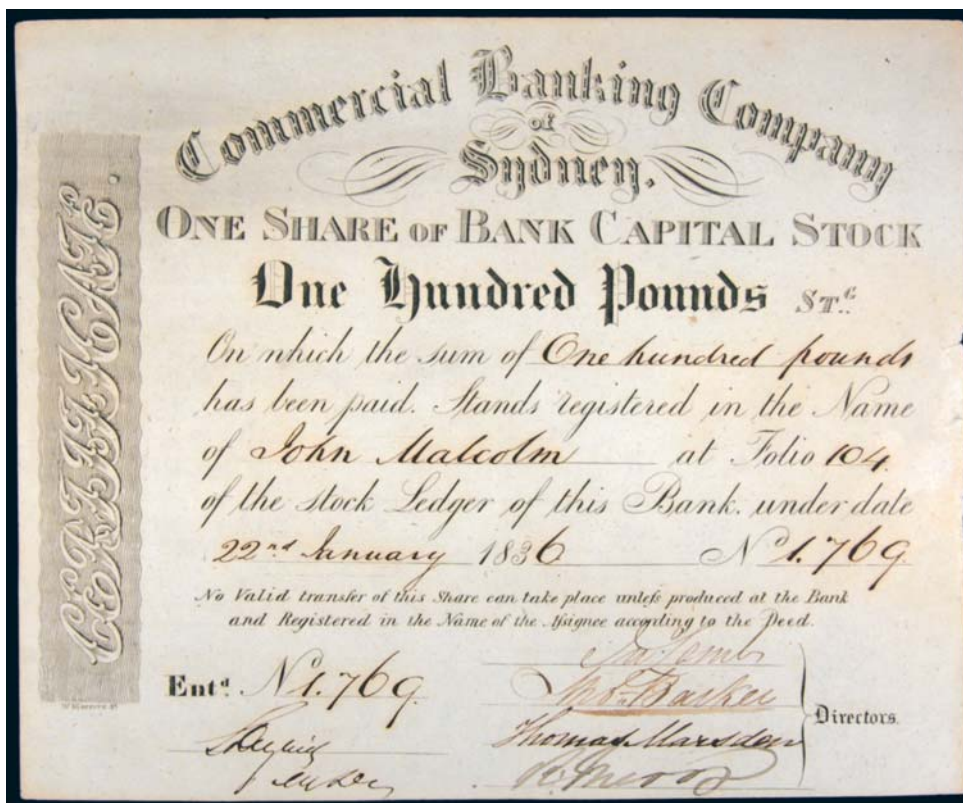 Commercial Banking Company
of
Sydney.
ONE SHARE OF BANK CAPITAL STOCK
One Hundred Pounds ST.G
On which the sum of One hundred pounds
has been paid. Stands registered in the Name
of John Malcolm at Folio 104
of the stock Ledger of this Bank. under date
22nd January 1836 No 1.769.
No Valid transfer of this Share can take place unleſs produced at the Bank
and Registered in the Name of the Aſsignee according to the Deed.
CERTIFICATE.
Entd. No 1.769.
Thos. Barker
Thomas Marsden
Directors.